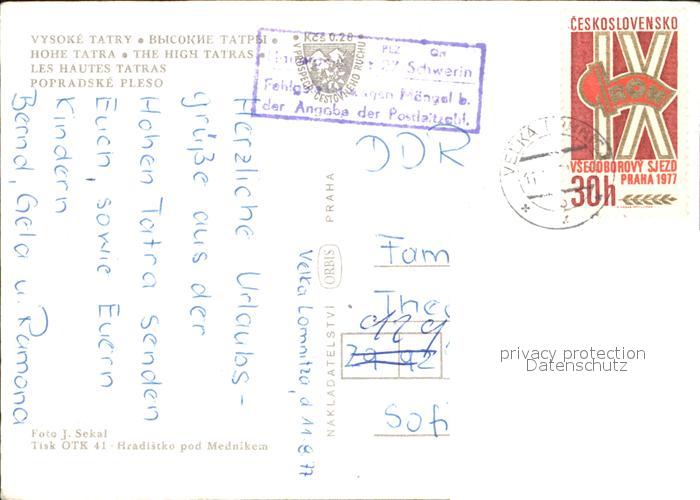 VYSOKÉ TATRY • ВЫСОКИЕ ТАТРЫ •
HOHE TATRA • THE HIGH TATRAS •
LES HAUTES TATRAS
POPRADSKÉ PLESO
Kčs 0.20
V PROSPĚCH CESTOVNÍHO RUCHU
PLZ Ort
27 Schwerin
Mängel b.
der Angabe der Postleitzahl.
ČESKOSLOVENSKO
IX
ROH
VŠEODBOROVÝ SJEZD
PRAHA 1977
30h
VEĽKÁ
DDR
Herzliche Urlaubs-
grüße aus der
Hohen Tatra senden
Euch, sowie Euern
Kindern
Bernd, Gela u. Ramona
Velka Lomnitza, d. 11.8.77
NAKLADATELSTVÍ ORBIS PRAHA
Fam
Theo
Sof
privacy protection
Datenschutz
Foto J. Sekal
Tisk OTK 41 - Hradištko pod Medníkem